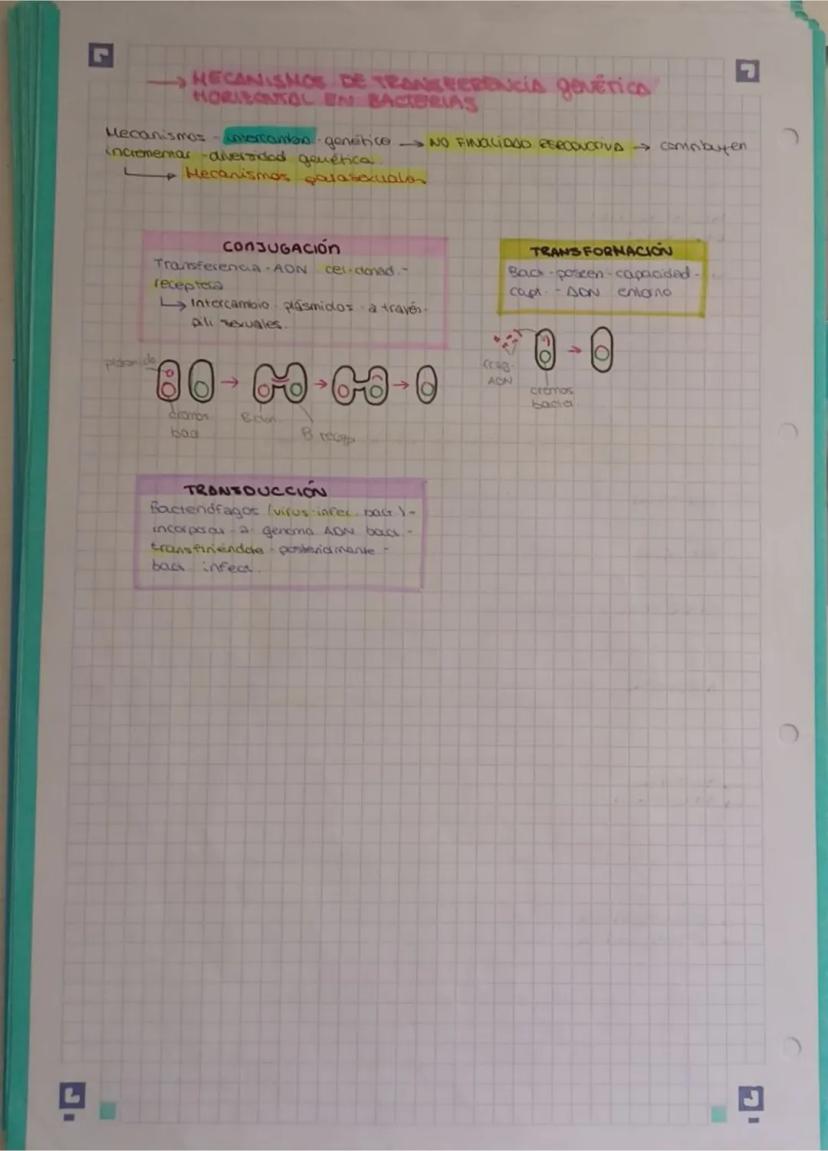 → MECANISMOS DE TRANSFERENCIA genética
HORIZONTAL EN BACTERIAS
Mecanismos - intercambio - genético → NO FINALIDAD REPRODUCTIVA → contribuyen
incrementar - diversidad genética.
↳ Mecanismos parasexuales
CONJUGACIÓN
Transferencia - ADN cel. donad. -
receptora
↳ Intercambio plásmidos a través
pili sexuales.
plásmido
cromos
bact
B recep
TRANSFORMACIÓN
Bact - poseen - capacidad -
capt. - ADN entorno
ADN
cromos
bacte
TRANSDUCCIÓN
Bacteriófagos (virus infec. bact) -
incorporar a genoma ADN bact -
transfiriéndola - posteriormente -
bact infect.